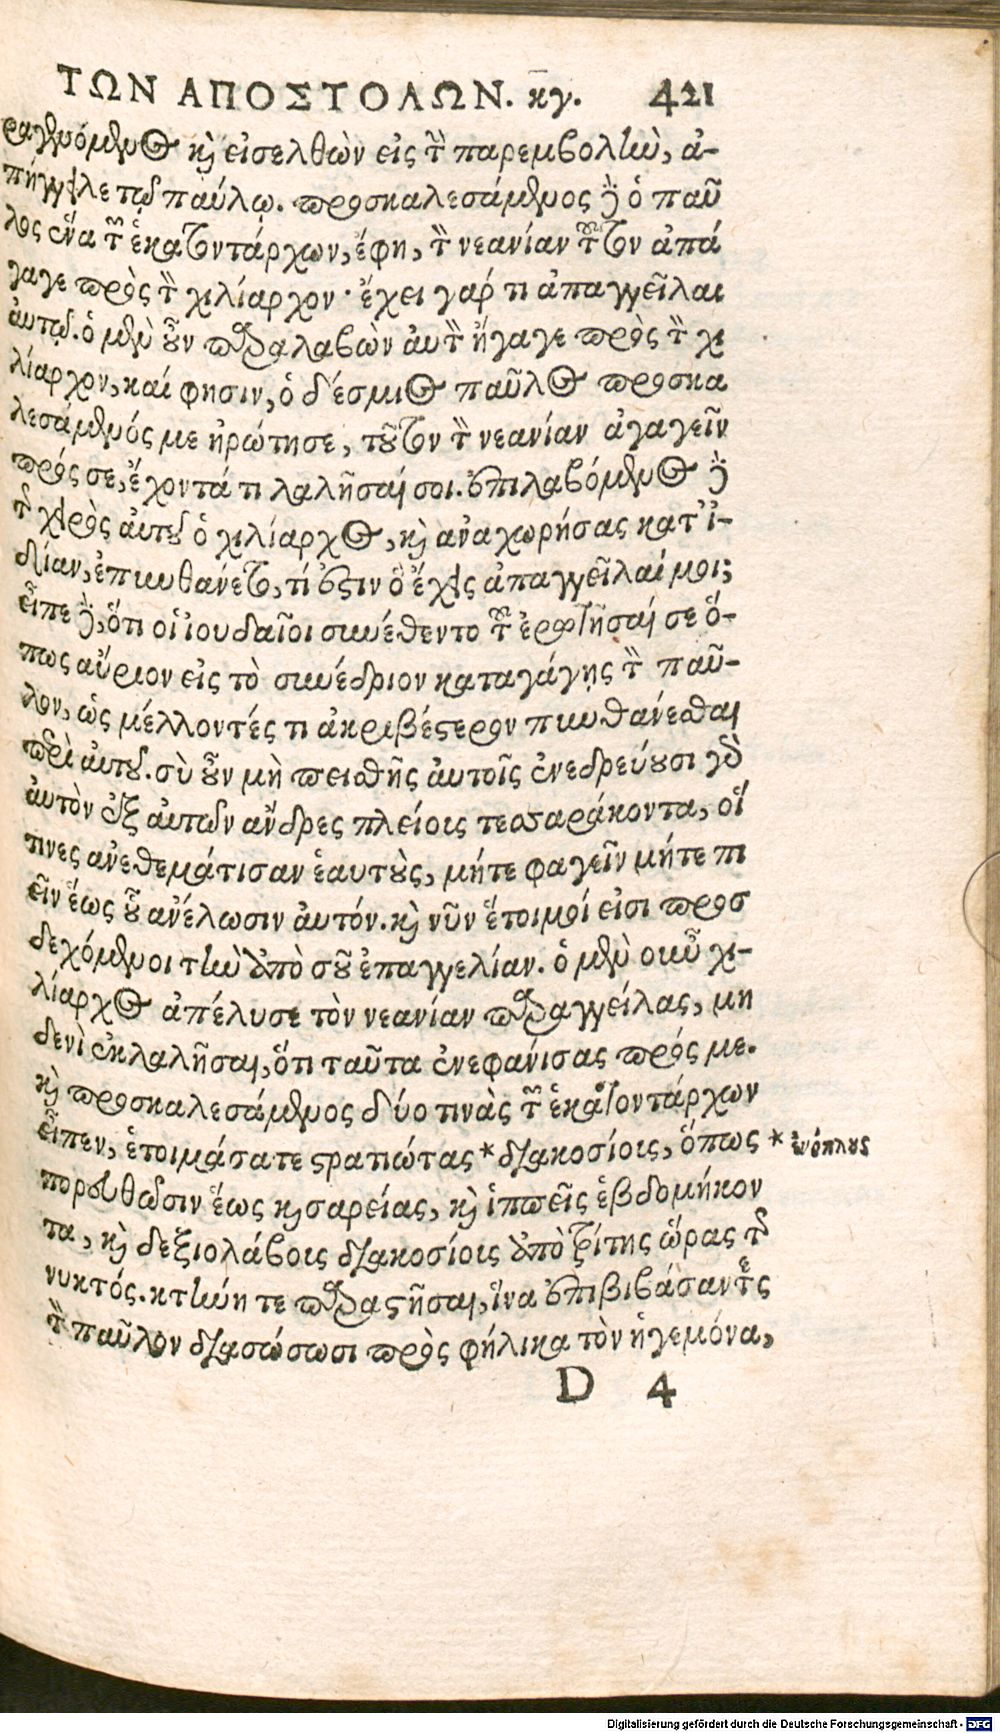 ΤΩΝ ΑΠΟΣΤΟΛΩΝ. κγ. 421
ραγενόμενος καὶ εἰσελθὼν εἰς τὴν παρεμβολὴν, ἀ-
πήγγειλε τῷ παύλῳ. προσκαλεσάμενος δὲ ὁ παῦ
λος ἕνα τῶν ἑκατοντάρχων, ἔφη, τὸν νεανίαν τοῦτον ἀπά
γαγε πρὸς τὸν χιλίαρχον· ἔχει γάρ τι ἀπαγγεῖλαι
ἀυτῷ. ὁ μὲν οὖν παραλαβὼν ἀυτὸν ἤγαγε πρὸς τὸν χι
λίαρχον, καί φησιν, ὁ δέσμιος παῦλος προσκα
λεσάμενός με ἠρώτησε, τοῦτον τὸν νεανίαν ἀγαγεῖν
πρός σε, ἔχοντά τι λαλῆσαί σοι. ἐπιλαβόμενος δὲ
τῆς χειρὸς ἀυτοῦ ὁ χιλίαρχος, καὶ αναχωρήσας κατ' ἰ-
δίαν, ἐπυνθάνετο, τί ἐστιν ὃ ἔχεις ἀπαγγεῖλαί μοι;
εἶπε δὲ, ὅτι οἱ ἰουδαῖοι συνέθεντο τοῦ ἐρωτῆσαί σε ὅ-
πως αὔριον εἰς τὸ συνέδριον καταγάγῃς τὸν παῦ-
λον, ὡς μέλλοντές τι ἀκριβέστερον πυνθάνεσθαι
περὶ ἀυτοῦ. σὺ οὖν μὴ πεισθῇς ἀυτοῖς ἐνεδρεύουσι γὰρ
ἀυτὸν ἐξ ἀυτῶν ἄνδρες πλείους τεσσαράκοντα, οἵ
τινες ανεθεμάτισαν ἑαυτοὺς, μήτε φαγεῖν μήτε πι
εῖν ἕως οὗ ανέλωσιν ἀυτόν. καὶ νῦν ἕτοιμοί εἰσι προσ
δεχόμενοι τὴν ἀπὸ σοῦ ἐπαγγελίαν. ὁ μὲν οὖν χι-
λίαρχος ἀπέλυσε τὸν νεανίαν παραγγείλας, μη
δενὶ ἐκλαλῆσαι, ὅτι ταῦτα ἐνεφάνισας πρός με.
καὶ προσκαλεσάμενος δύο τινὰς τῶν ἑκατοντάρχων
εἶπεν, ἑτοιμάσατε στρατιώτας * διακοσίους, ὅπως * ἐνόπλους
πορευθῶσιν ἕως καισαρείας, καὶ ἱππεῖς ἑβδομήκον
τα, καὶ δεξιολάβους διακοσίους ἀπὸ τρίτης ὥρας τῆς
νυκτός. κτήνη τε παραστῆσαι, ἵνα ἐπιβιβάσαντες
τὸν παῦλον διασώσωσι πρὸς φήλικα τὸν ἡγεμόνα,
D 4
Digitalisierung gefördert durch die Deutsche Forschungsgemeinschaft - DFG